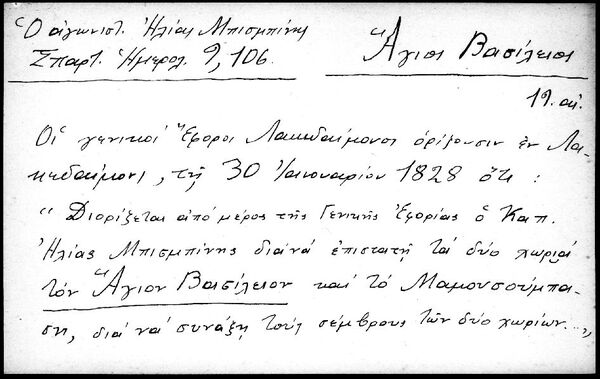 Ὁ ἀγωνιστ. Ἠλίας Μπισμπίνης
Σπαρτ. Ἡμερολ. 9, 106
Ἅγιος Βασίλειος
19. αἰ.
Οἱ γενικοί Ἔφοροι Λακεδαίμονος ὁρίζουσιν ἐν Λα-
κεδαίμονι, τῇ 30 Ἰανουαρίου 1828 ὅτι :
"Διορίζεται ἀπό μέρος τῆς Γενικῆς Ἐφορίας ὁ Καπ.
Ἠλίας Μπισμπίνης διά νά ἐπιστατῇ τά δύο χωριά
τόν Ἅγιον Βασίλειον καί τό Μαμουσούμπα-
ση, διά νά συνάξῃ τούς σέμβρους τῶν δύο χωρίων...,,